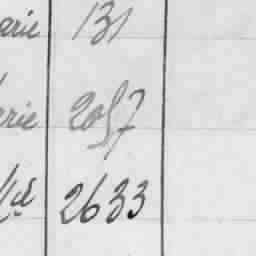 arie 131
erie 2057
Md 2633